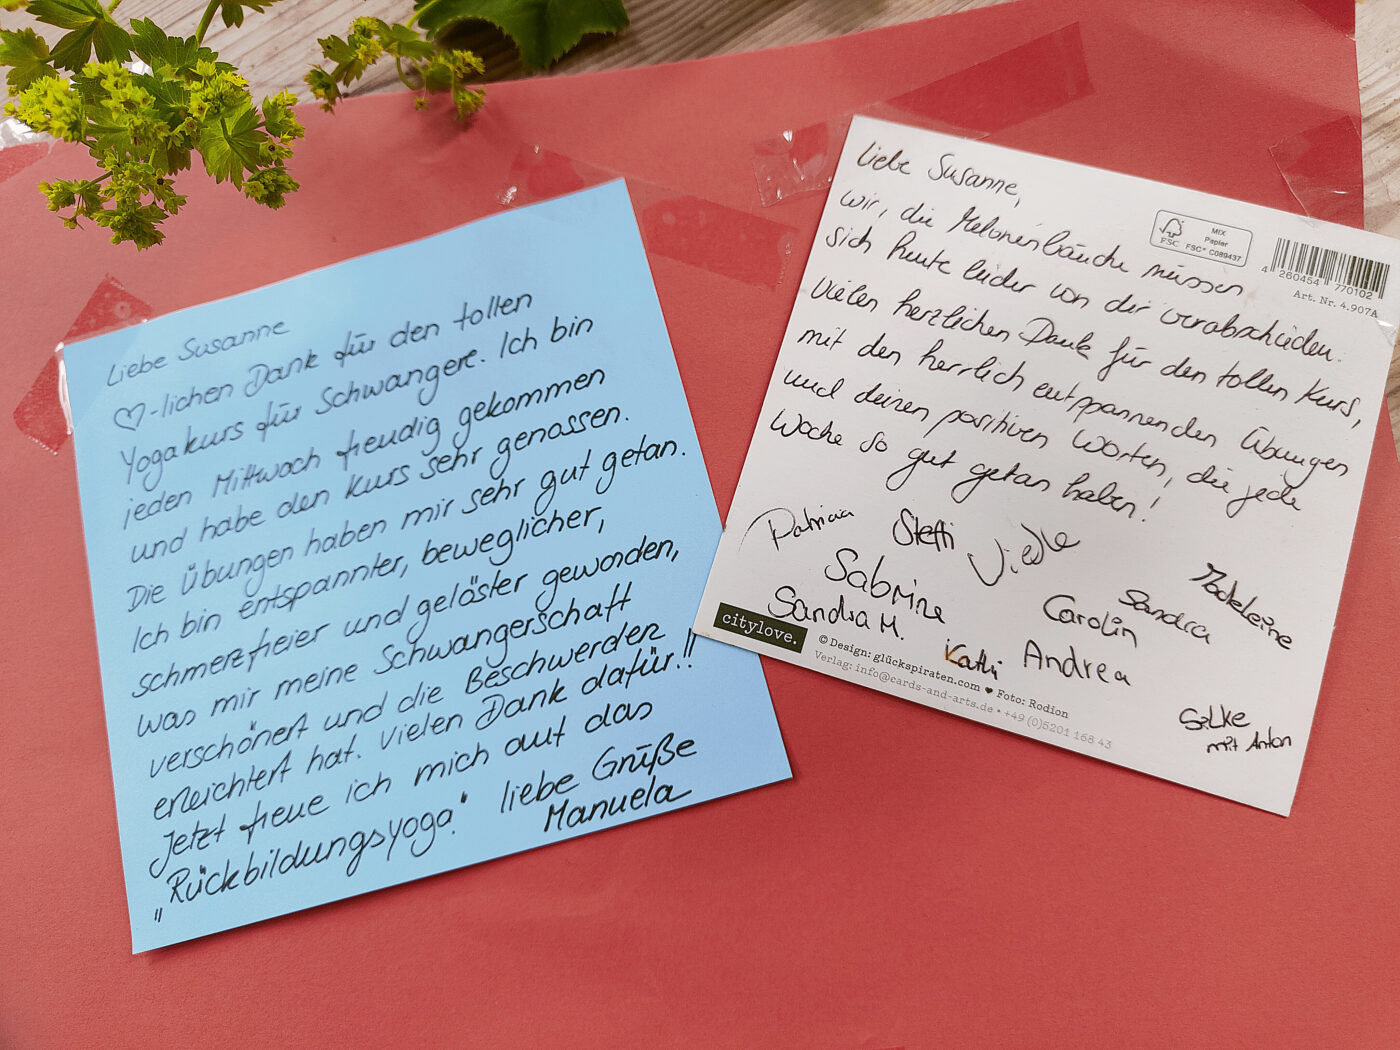 Liebe Susanne
♡-lichen Dank für den tollen
Yogakurs für Schwangere. Ich bin
jeden Mittwoch freudig gekommen
und habe den Kurs sehr genossen.
Die Übungen haben mir sehr gut getan.
Ich bin entspannter, beweglicher,
schmerzfreier und gelöster geworden,
was mir meine Schwangerschaft
verschönert und die Beschwerden
erleichtert hat. Vielen Dank dafür!!
Jetzt freue ich mich auf das
"Rückbildungsyoga". liebe Grüße
Manuela
Liebe Susanne,
wir, die Melonenbäuche müssen
sich heute leider von dir verabschieden.
Vielen herzlichen Dank für den tollen Kurs,
mit den herrlich entspannenden Übungen
und deinen positiven Worten, die jede
Woche so gut getan haben!
MIX
Papier
FSC FSC® C089437
4 260454 770102
Art. Nr. 4.907A
Patricia Steffi
Sabrine Carolin Sandra Madeleine
Sandra M. Kathi Andrea
Silke
mit Anton
citylove.
© Design: glückspiraten.com ♥ Foto: Rodion
Verlag: info@cards-and-arts.de • +49 (0)5201 168 43